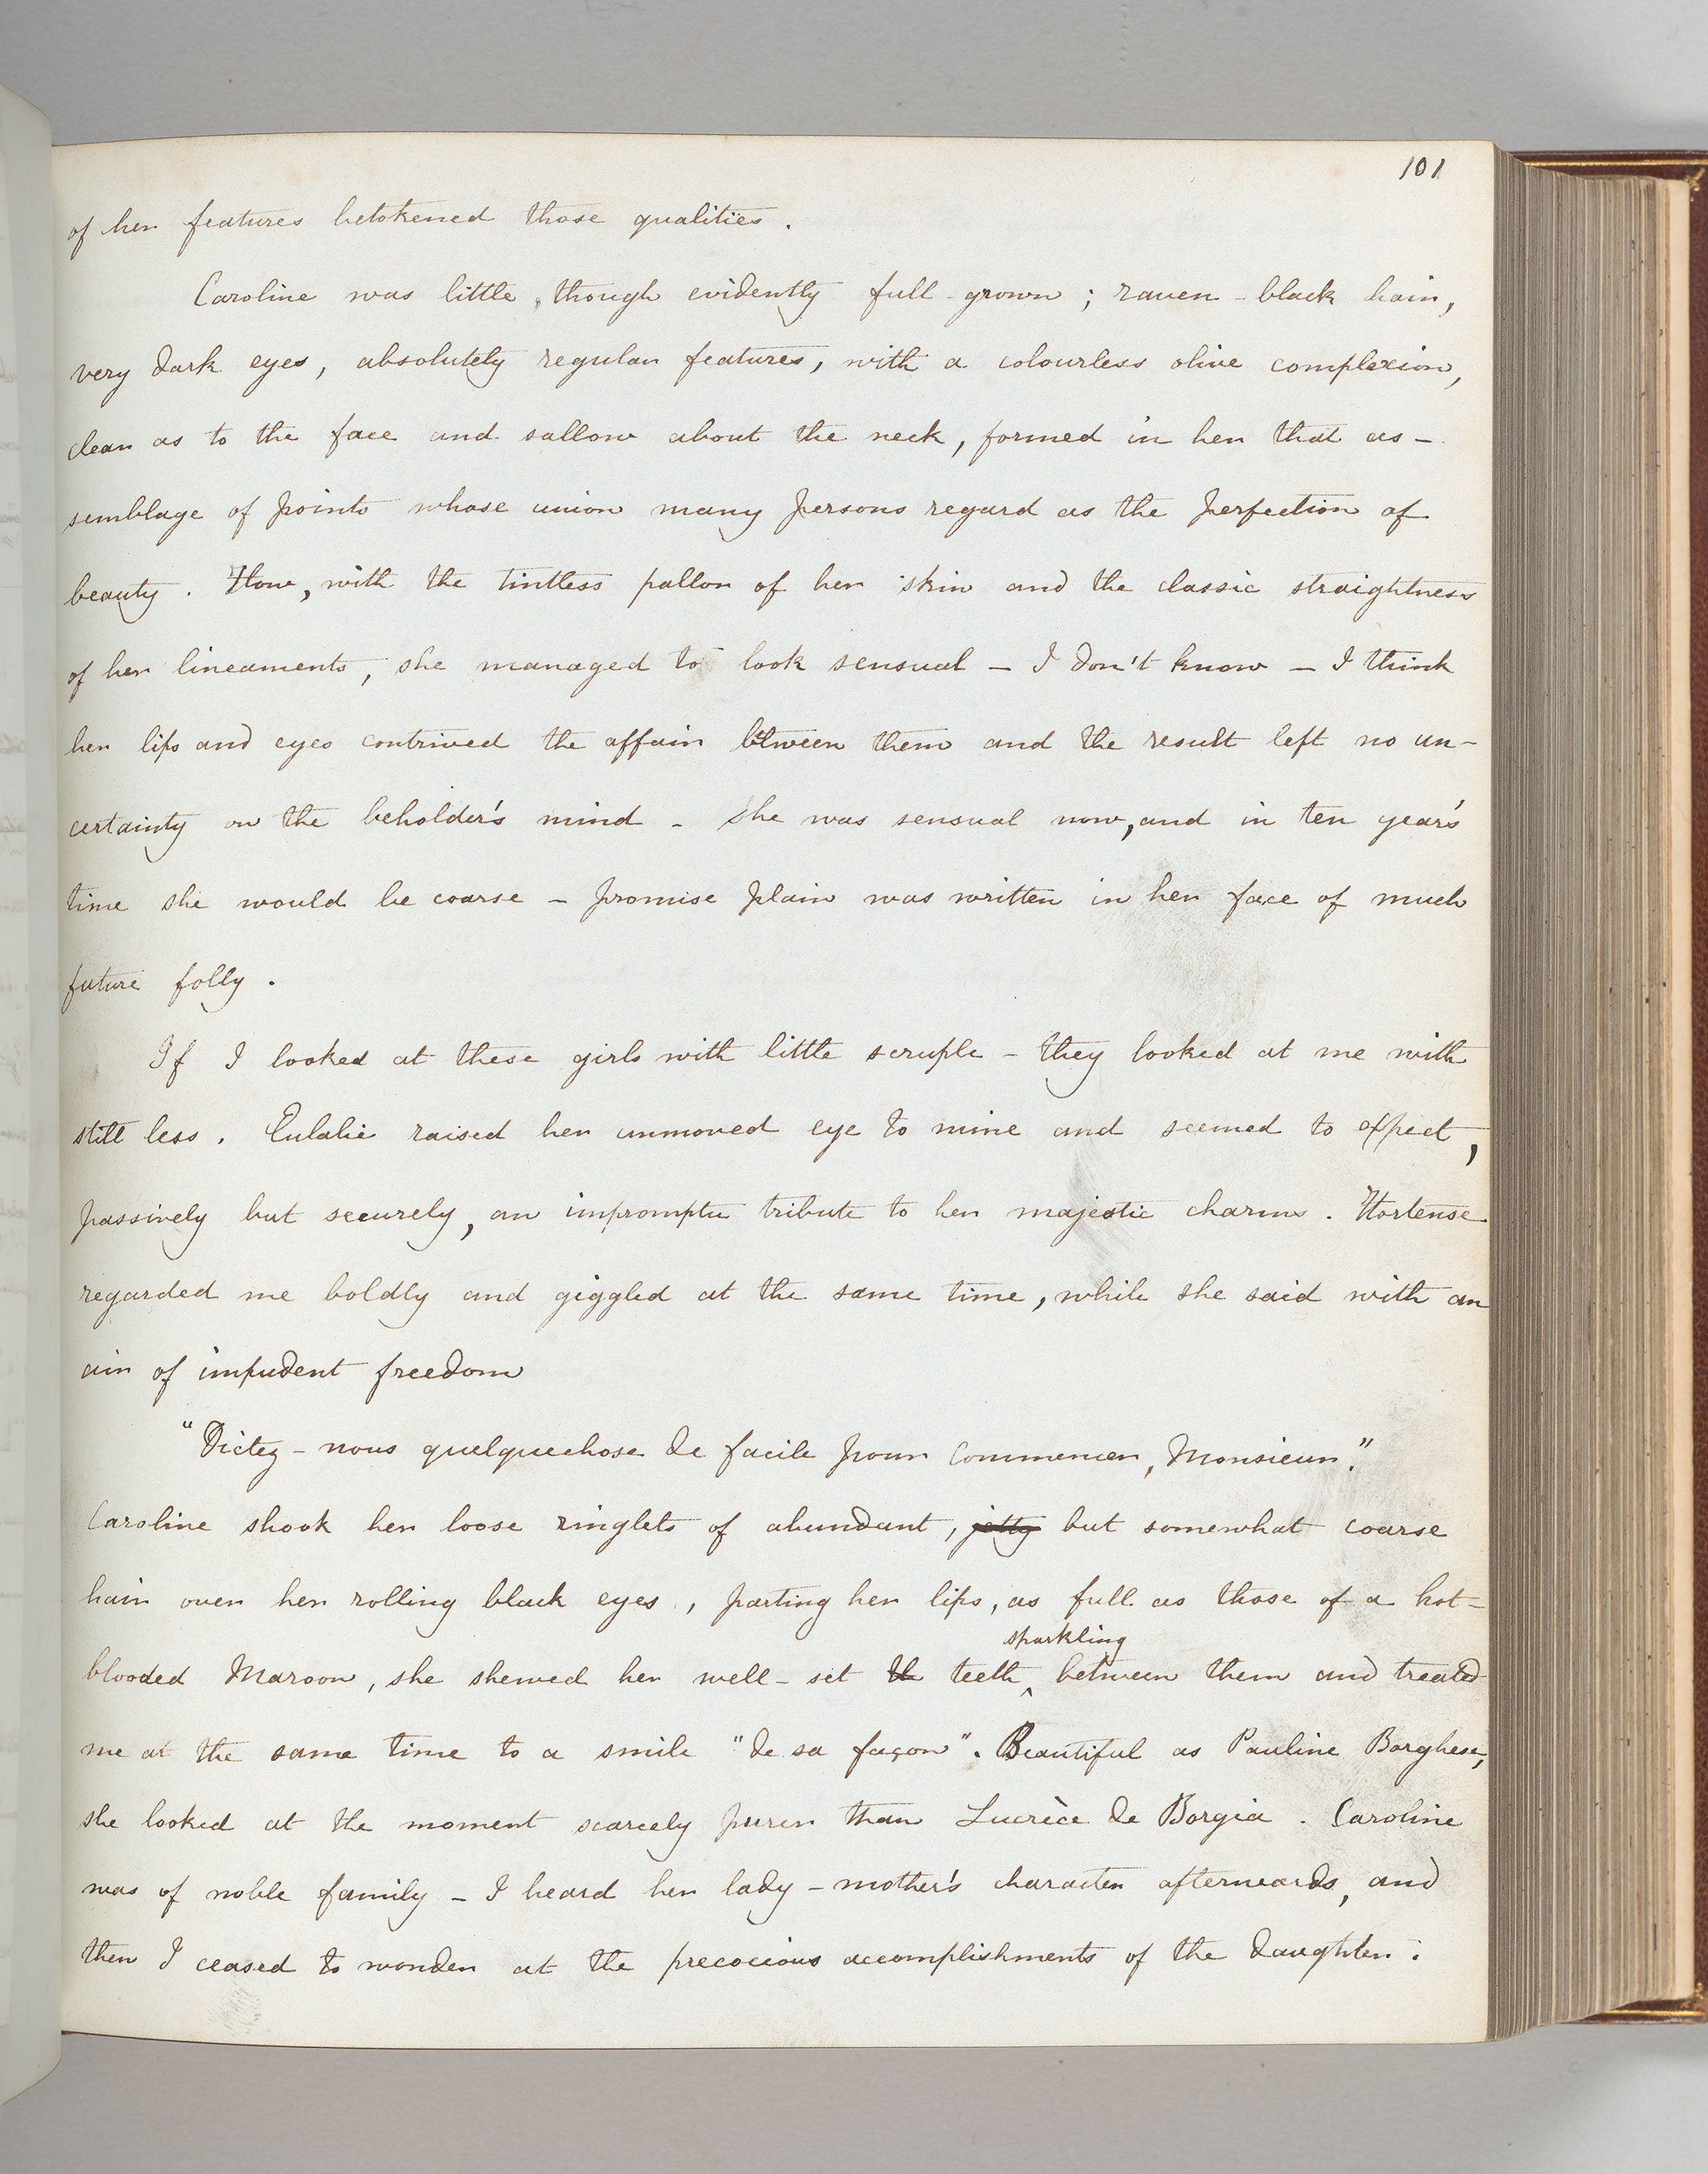 101
of her features betokened those qualities.
Caroline was little, though evidently full-grown; raven-black hair,
very dark eyes, absolutely regular features, with a colourless olive complexion,
clear as to the face and sallow about the neck, formed in her that as-
semblage of points whose union many persons regard as the perfection of
beauty. How, with the tintless pallor of her skin and the classic straightness
of her lineaments, she managed to look sensual – I don't know – I think
her lips and eyes contrived the affair between them and the result left no un-
certainty on the beholder's mind – She was sensual now, and in ten year's
time she would be coarse – promise plain was written in her face of much
future folly.
If I looked at these girls with little scruple – they looked at me with
still less. Eulalie raised her unmoved eye to mine and seemed to expect,
passively but securely, an impromptu tribute to her majestic charms. Hortense
regarded me boldly and giggled at the same time, while she said with an
air of impudent freedom
"Dictez-nous quelquechose de facile pour commencer, Monsieur."
Caroline shook her loose ringlets of abundant, jetty but somewhat coarse
hair over her rolling black eyes, parting her lips, as full as those of a hot-
sparkling
blooded Maroon, she shewed her well-set th teeth between them and treated
me at the same time to a smile "de sa façon". Beautiful as Pauline Borghese,
she looked at the moment scarcely purer than Lucrèce de Borgia. Caroline
was of noble family – I heard her lady-mother's character afterwards, and
then I ceased to wonder at the precocious accomplishments of the daughter.